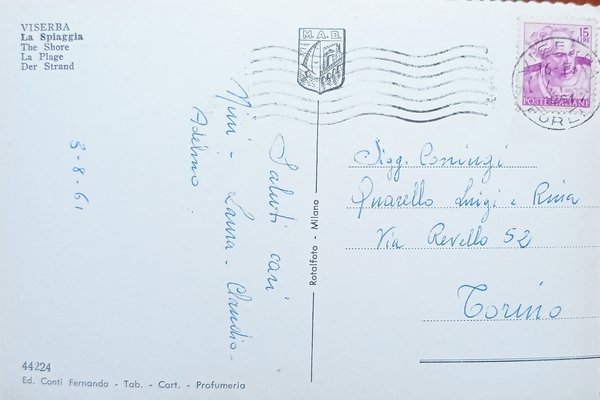 VISERBA
La Spiaggia
The Shore
La Plage
Der Strand
M.A.B.
15
LIRE
POSTE ITALIANE
3-8-61
Saluti cari
Nini - Laura - Claudio -
Adelmo
Rotalfoto - Milano
Sigg. Coniugi
Quarello Luigi e Rina
Via Revello 52
Torino
44224
Ed. Conti Fernanda - Tab. - Cart. - Profumeria